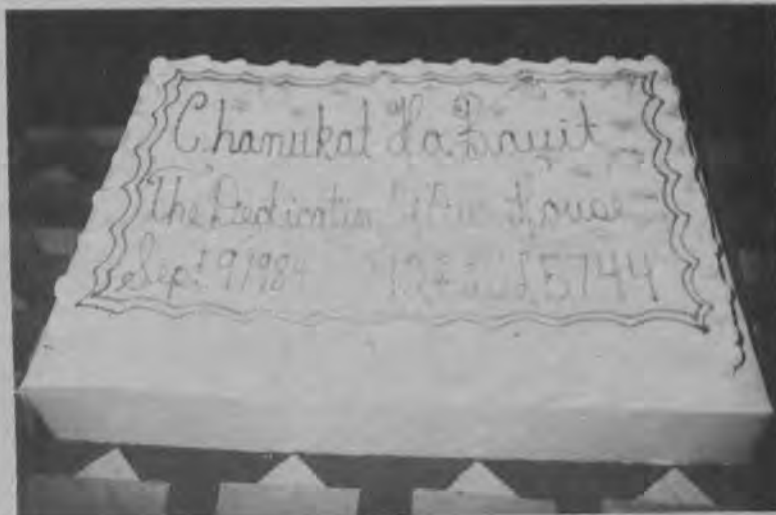 Chanukat Ha Bayit
The Dedication of Our House
Sept 9 1984 12 Elul 5744